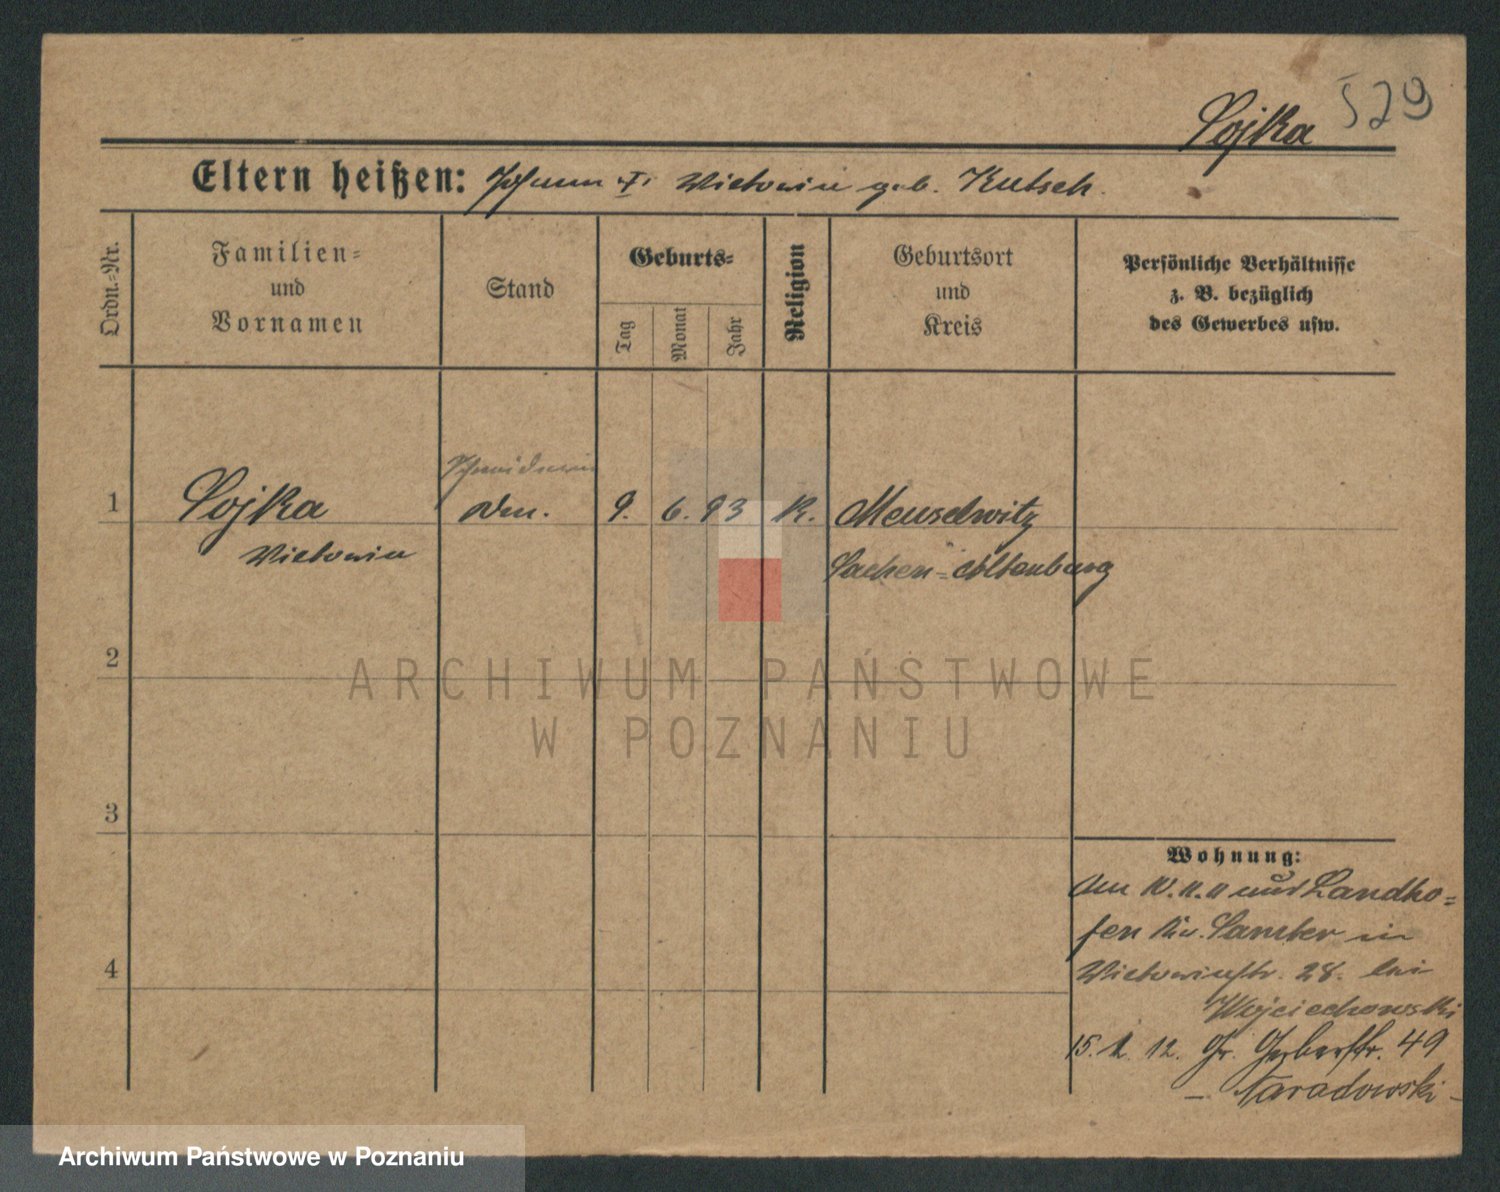 529
Sojka
Eltern heißen: Johann u. Victoria geb. Kutsch.
Ordn.-Nr.
Familien-
und
Vornamen
Stand
Geburts-
Tag
Monat
Jahr
Religion
Geburtsort
und
Kreis
Persönliche Verhältnisse
z. B. bezüglich
des Gewerbes usw.
Schneiderin
1 Sojka 9. 6. 93 K. Meuselwitz
Victoria
Sachen-Altenburg
2
ARCHIWUM PAŃSTWOWE
W POZNANIU
3
Wohnung:
Am 10.11.11 aus Landho-
fen Kr. Samter in
4
Victoriastr. 28. bei
Wojciechowski
15. 1. 12. Gr. Gerberstr. 49
- Naradowski -
Archiwum Państwowe w Poznaniu